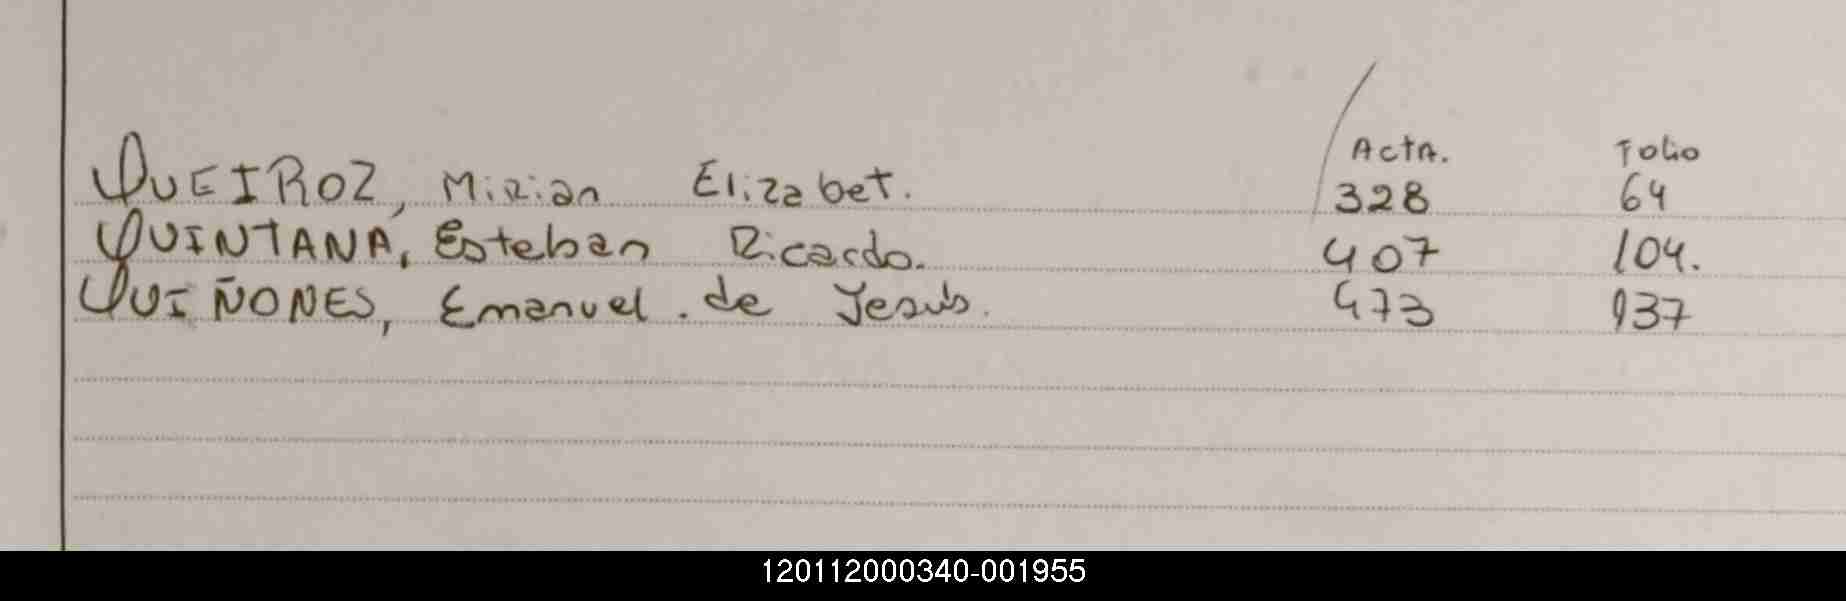 Acta. Folio
QUEIROZ, Mirian Elizabet. 328 64
QUINTANA, Esteban Ricardo. 407 104.
QUIÑONES, Emanuel. de Jesus. 473 137
120112000340-001955